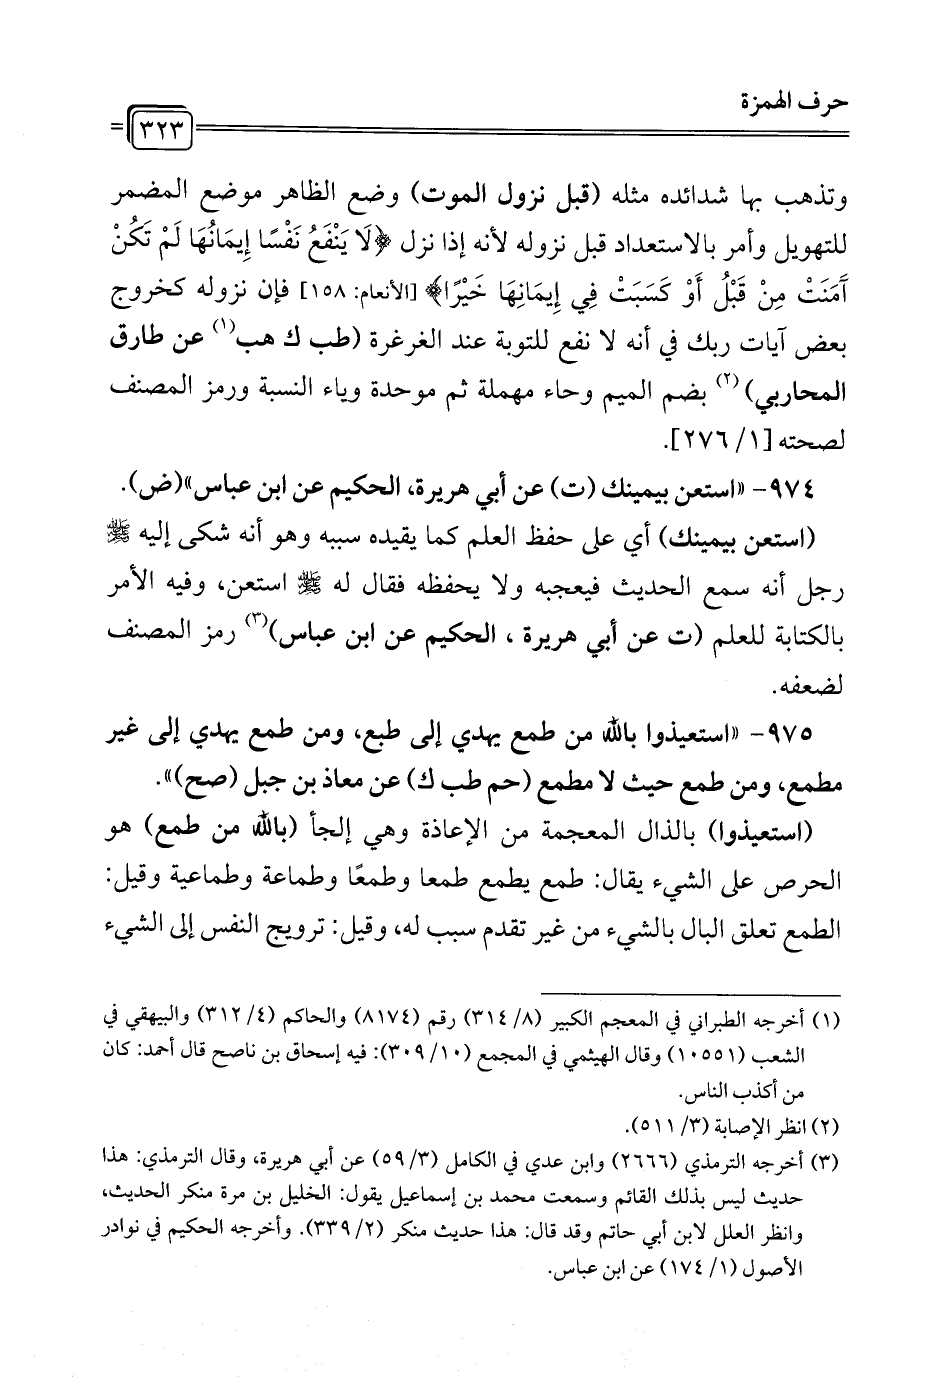 حرف الهمزة
٣٢٣
وتذهب بها شدائده مثله (قبل نزول الموت) وضع الظاهر موضع المضمر
للتهويل وأمر بالاستعداد قبل نزوله لأنه إذا نزل ﴿لَا يَنْفَعُ نَفْسًا إِيمَانُهَا لَمْ تَكُنْ
آَمَنَتْ مِنْ قَبْلُ أَوْ كَسَبَتْ فِي إِيمَانِهَا خَيْرًا﴾ [الأنعام: ١٥٨] فإن نزوله كخروج
بعض آيات ربك في أنه لا نفع للتوبة عند الغرغرة (طب ك هب(١) عن طارق
المحاربي)(٢) بضم الميم وحاء مهملة ثم موحدة وياء النسبة ورمز المصنف
لصحته [١/ ٢٧٦].
٩٧٤- «استعن بيمينك (ت) عن أبي هريرة، الحكيم عن ابن عباس»(ض).
(استعن بيمينك) أي على حفظ العلم كما يقيده سببه وهو أنه شكى إليه ﷺ
رجل أنه سمع الحديث فيعجبه ولا يحفظه فقال له ﷺ استعن، وفيه الأمر
بالكتابة للعلم (ت عن أبي هريرة ، الحكيم عن ابن عباس)(٣) رمز المصنف
لضعفه.
٩٧٥- «استعيذوا بالله من طمع يهدي إلى طبع، ومن طمع يهدي إلى غير
مطمع، ومن طمع حيث لا مطمع (حم طب ك) عن معاذ بن جبل (صح)».
(استعيذوا) بالذال المعجمة من الإعاذة وهي إلجأ (بالله من طمع) هو
الحرص على الشيء يقال: طمع يطمع طمعا وطمعًا وطماعة وطماعية وقيل:
الطمع تعلق البال بالشيء من غير تقدم سبب له، وقيل: ترويج النفس إلى الشيء
(١) أخرجه الطبراني في المعجم الكبير (٨/ ٣١٤) رقم (٨١٧٤) والحاكم (٤/ ٣١٢) والبيهقي في
الشعب (١٠٥٥١) وقال الهيثمي في المجمع (١٠/ ٣٠٩): فيه إسحاق بن ناصح قال أحمد: كان
من أكذب الناس.
(٢) انظر الإصابة (٣/ ٥١١).
(٣) أخرجه الترمذي (٢٦٦٦) وابن عدي في الكامل (٣/ ٥٩) عن أبي هريرة، وقال الترمذي: هذا
حديث ليس بذلك القائم وسمعت محمد بن إسماعيل يقول: الخليل بن مرة منكر الحديث،
وانظر العلل لابن أبي حاتم وقد قال: هذا حديث منكر (٢/ ٣٣٩). وأخرجه الحكيم في نوادر
الأصول (١/ ١٧٤) عن ابن عباس.